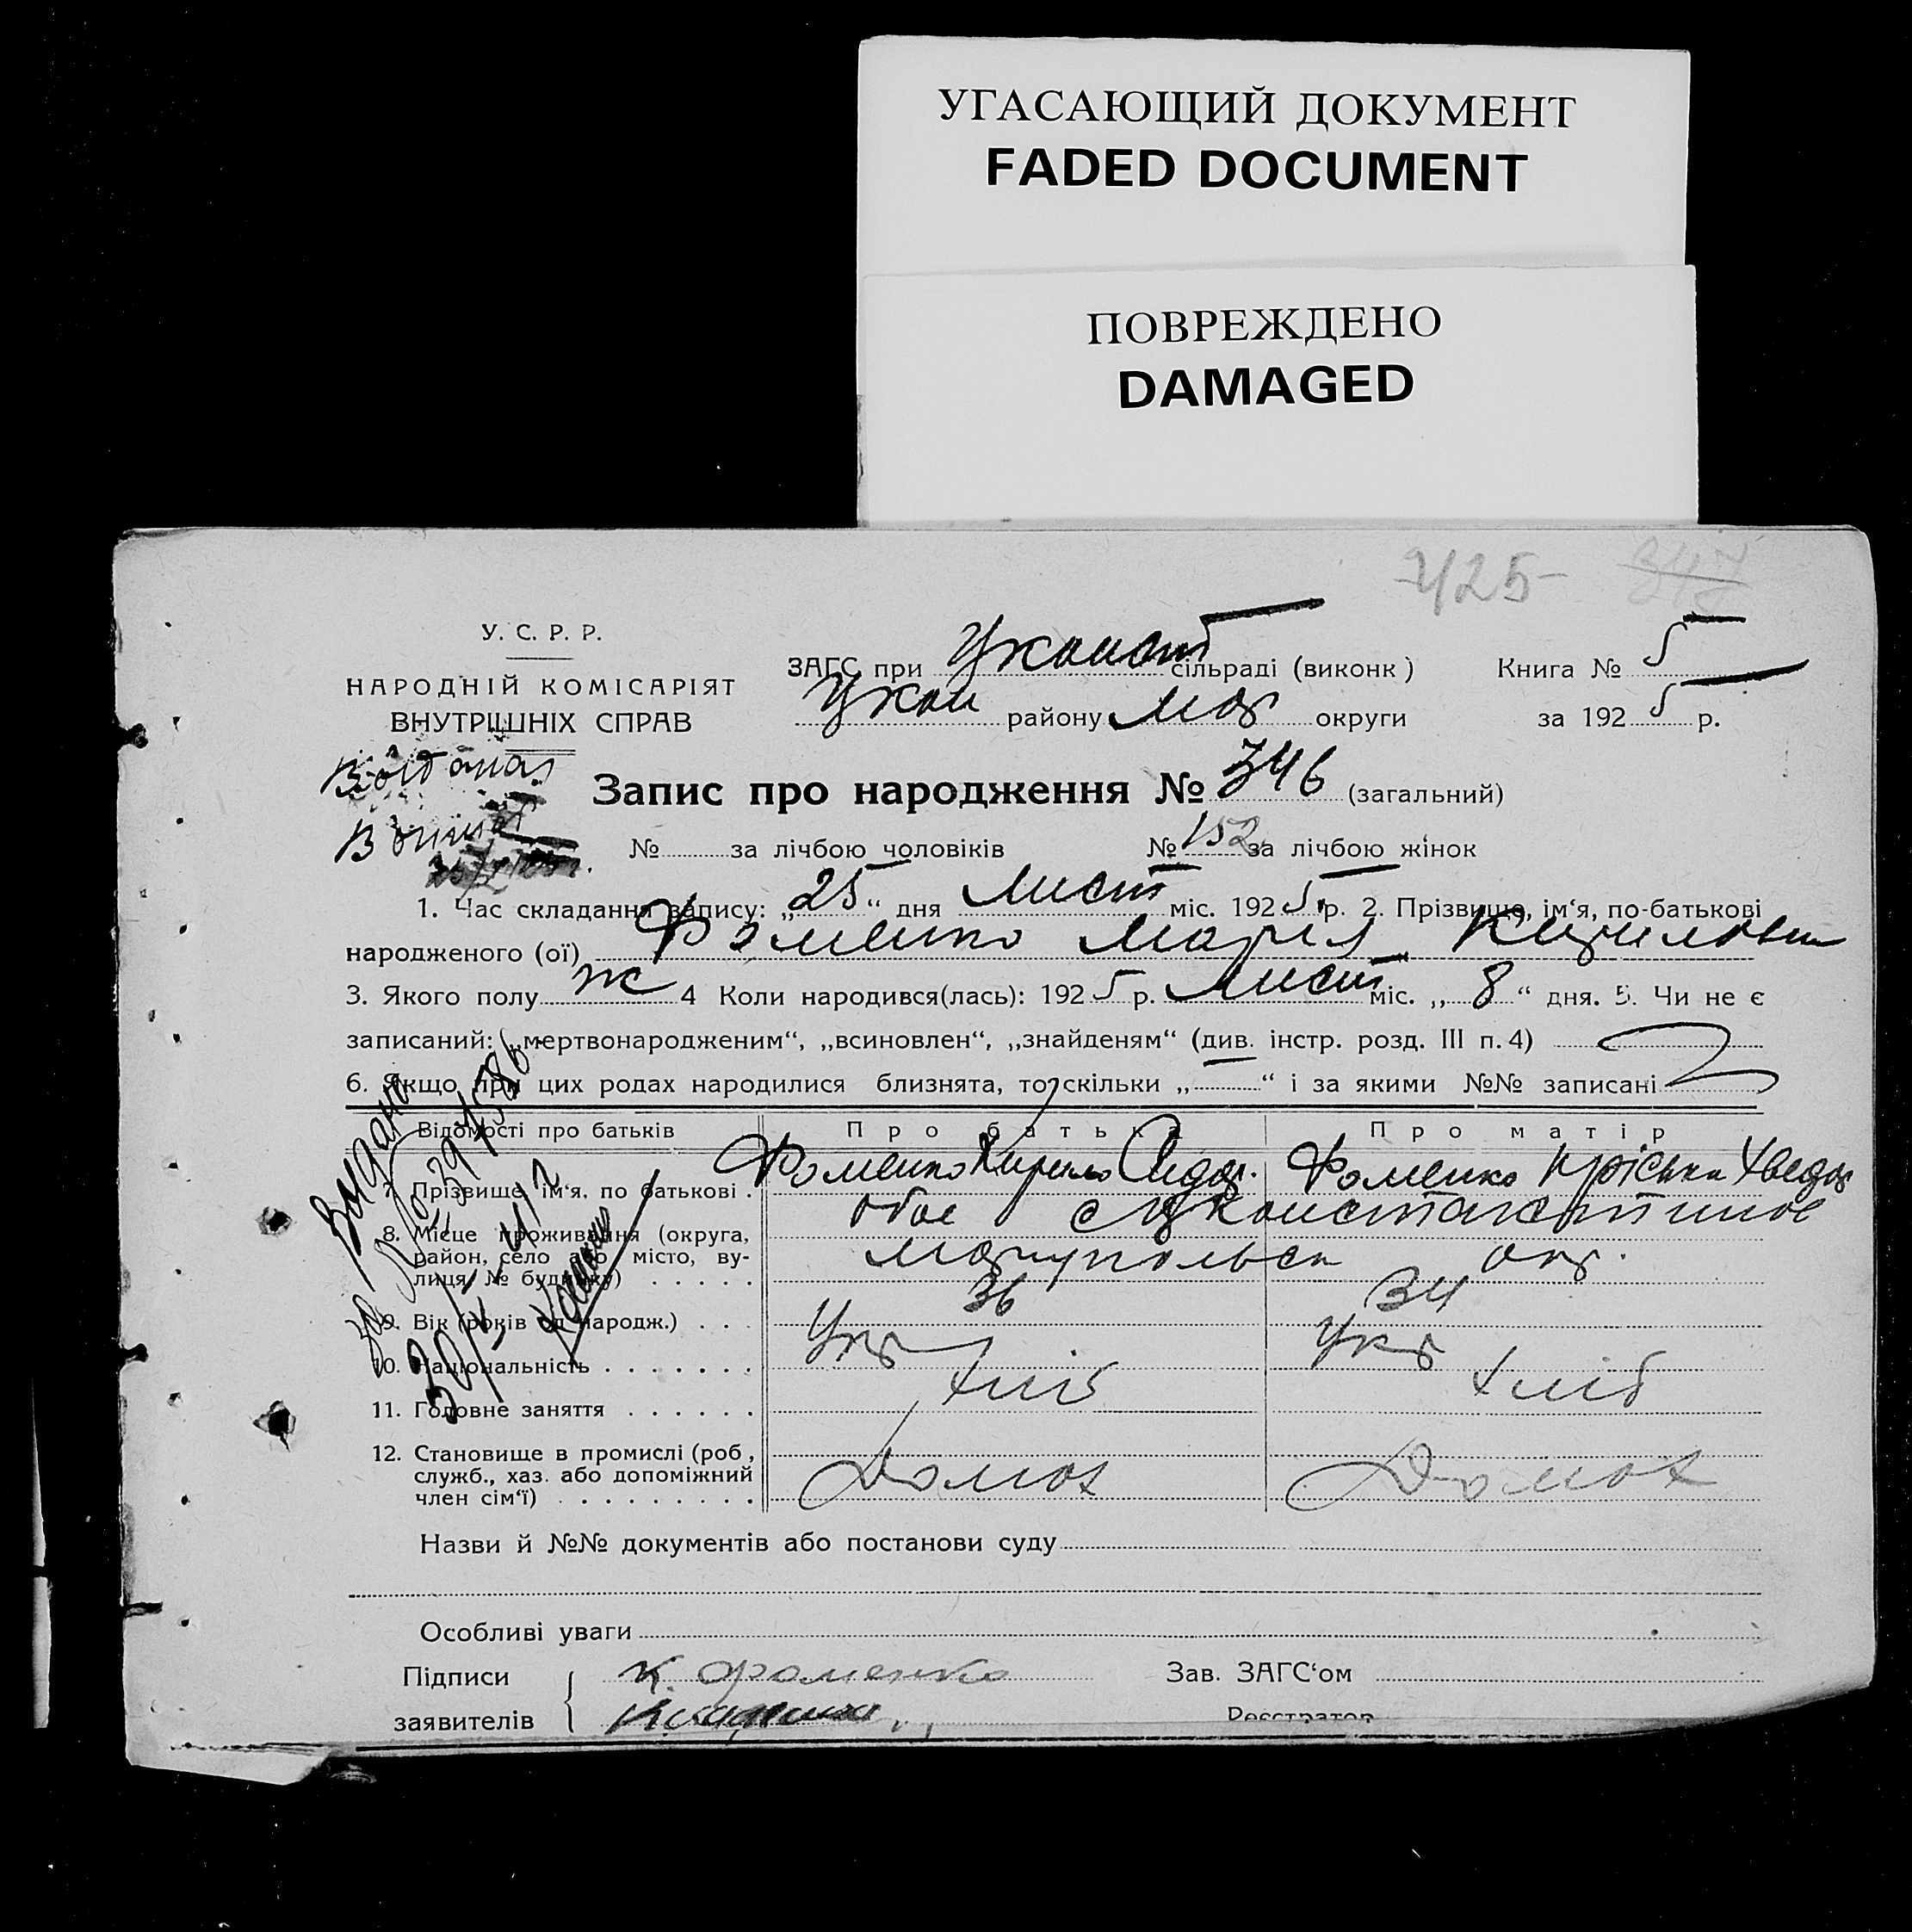 УГАСАЮЩИЙ ДОКУМЕНТ
FADED DOCUMENT
ПОВРЕЖДЕНО
DAMAGED
425 347
У. С. Р. Р.
НАРОДНІЙ КОМІСАРІЯТ
ВНУТРІШНІХ СПРАВ
ЗАГС при Уконст сільраді (виконк) Книга № 5
Укон району Мар округи за 1925 р.
Запис про народження № 346 (загальний)
№ за лічбою чоловіків № 152 за лічбою жінок
1. Час складання запису: „25“ дня Лист міс. 1925 р. 2. Прізвище, ім‘я, по-батькові
народженого (ої) Фоменко Мария Кириловн
3. Якого полу ж 4 Коли народився(лась): 1925 р. Лист міс. „8“ дня. 5. Чи не є
записаний: („мертвонародженим“, „всиновлен“, „знайденям“ (див. інстр. розд. III п. 4)
6. Якщо при цих родах народилися близнята, то скільки „ “ і за якими №№ записані
Відомості про батьків Про батька Про матір
7. Прізвище, ім‘я, по батькові . Фоменко Кирило Сидор. Фоменко Крiська Хведор
8. Місце проживання (округа, район, село або місто, вулиця, № будинку) обое
Марупольск окр.
9. Вік (років од народж.) 36 34
10. Національність Укр Укр
11. Головне заняття Хліб Хліб
12. Становище в промислі (роб, служб., хаз. або допоміжний член сім‘ї) Домох Домох
Назви й №№ документів або постанови суду
Особливі уваги
Підписи К. Фоменко Зав. ЗАГС‘ом
заявителів Реєстратор
Видано